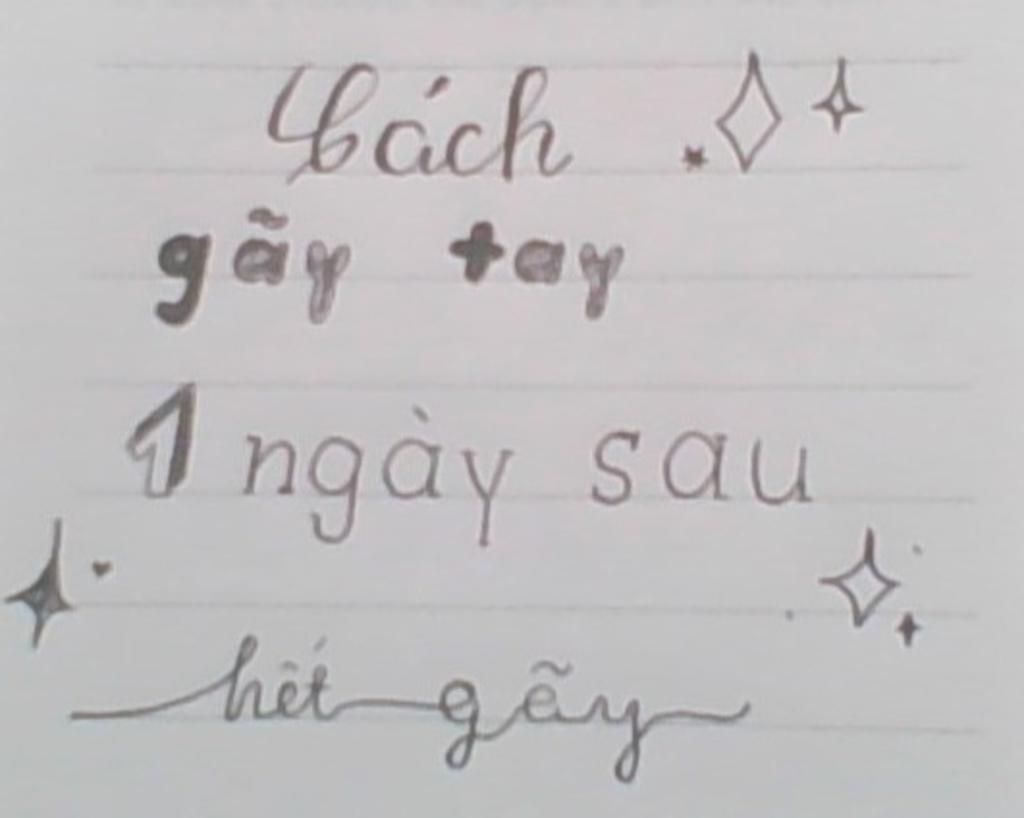 Cách
gãy tay
1 ngày sau
hết gãy